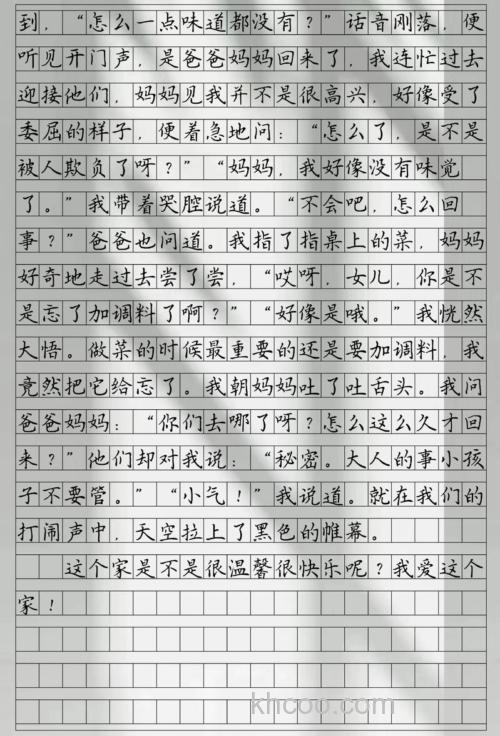 到，“怎么一点味道都没有？”话音刚落，便
听见开门声，是爸爸妈妈回来了，我连忙过去
迎接他们，妈妈见我并不是很高兴，好像受了
委屈的样子，便着急地问：“怎么了，是不是
被人欺负了呀？”“妈妈，我好像没有味觉
了。”我带着哭腔说道。“不会吧，怎么回
事？”爸爸也问道。我指了指桌上的菜，妈妈
好奇地走过去尝了尝，“哎呀，女儿，你是不
是忘了加调料了啊？”“好像是哦。”我恍然
大悟。做菜的时候最重要的还是要加调料，我
竟然把它给忘了。我朝妈妈吐了吐舌头。我问
爸爸妈妈：“你们去哪了呀？怎么这么久才回
来？”他们却对我说：“秘密。大人的事小孩
子不要管。”“小气！”我说道。就在我们的
打闹声中，天空拉上了黑色的帷幕。
这个家是不是很温馨很快乐呢？我爱这个
家！
khcoo.com